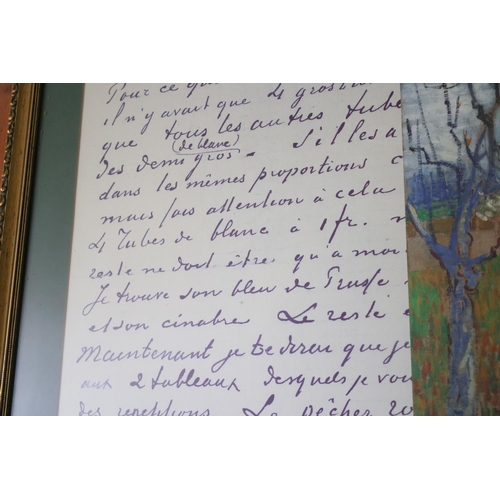 Pour ce qui
il n'y avait que 4 gros
que tous les autres tube
(de blanc)
des demi gros – S'il les a
dans les mêmes proportions c
mais fais attention à cela
4 Tubes de blanc à 1 fr. m
reste ne doit être qu'à moi
Je trouve son bleu de Prusse
et son cinabre Le reste e
Maintenant je te dirai que je
aux 2 tableaux desquels je vou
des répétitions. Le pêcher ro